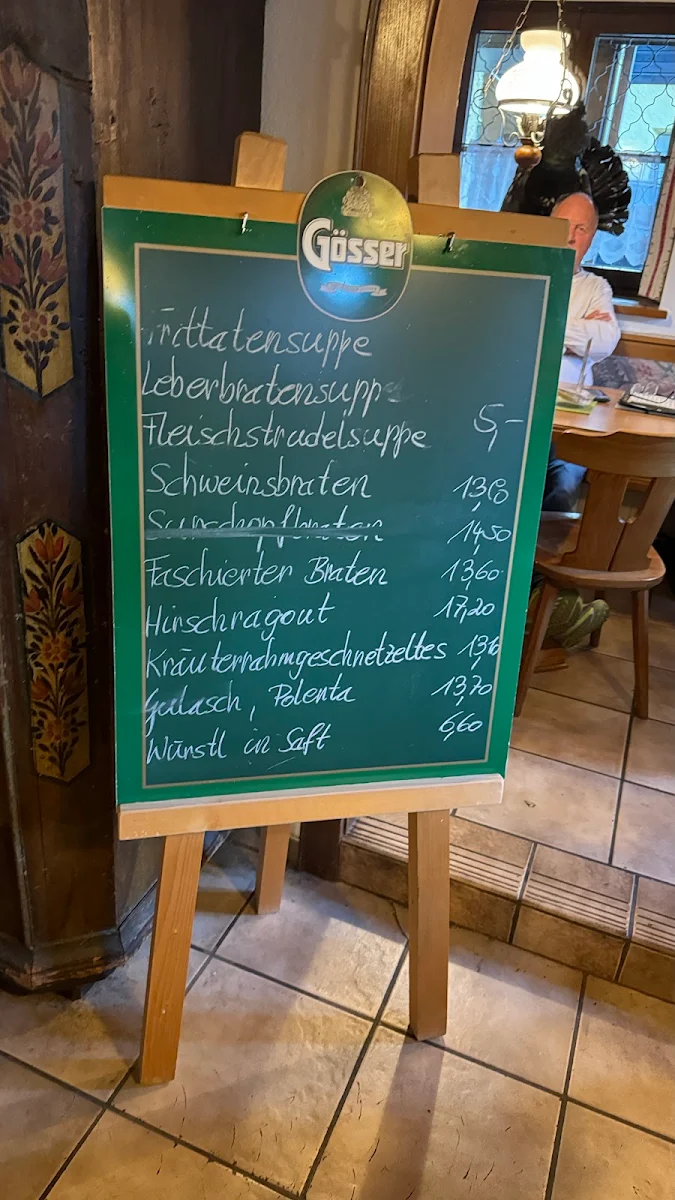 Gösser
Frittatensuppe
Leberbratensuppe
Fleischstrudelsuppe 5,-
Schweinsbraten
Surschopfbraten 14,50
Faschierter Braten 13,60
Hirschragout 17,20
Kräuterrahmgeschnetzeltes
Gulasch, Polenta 13,70
Würstl in Saft 6,60